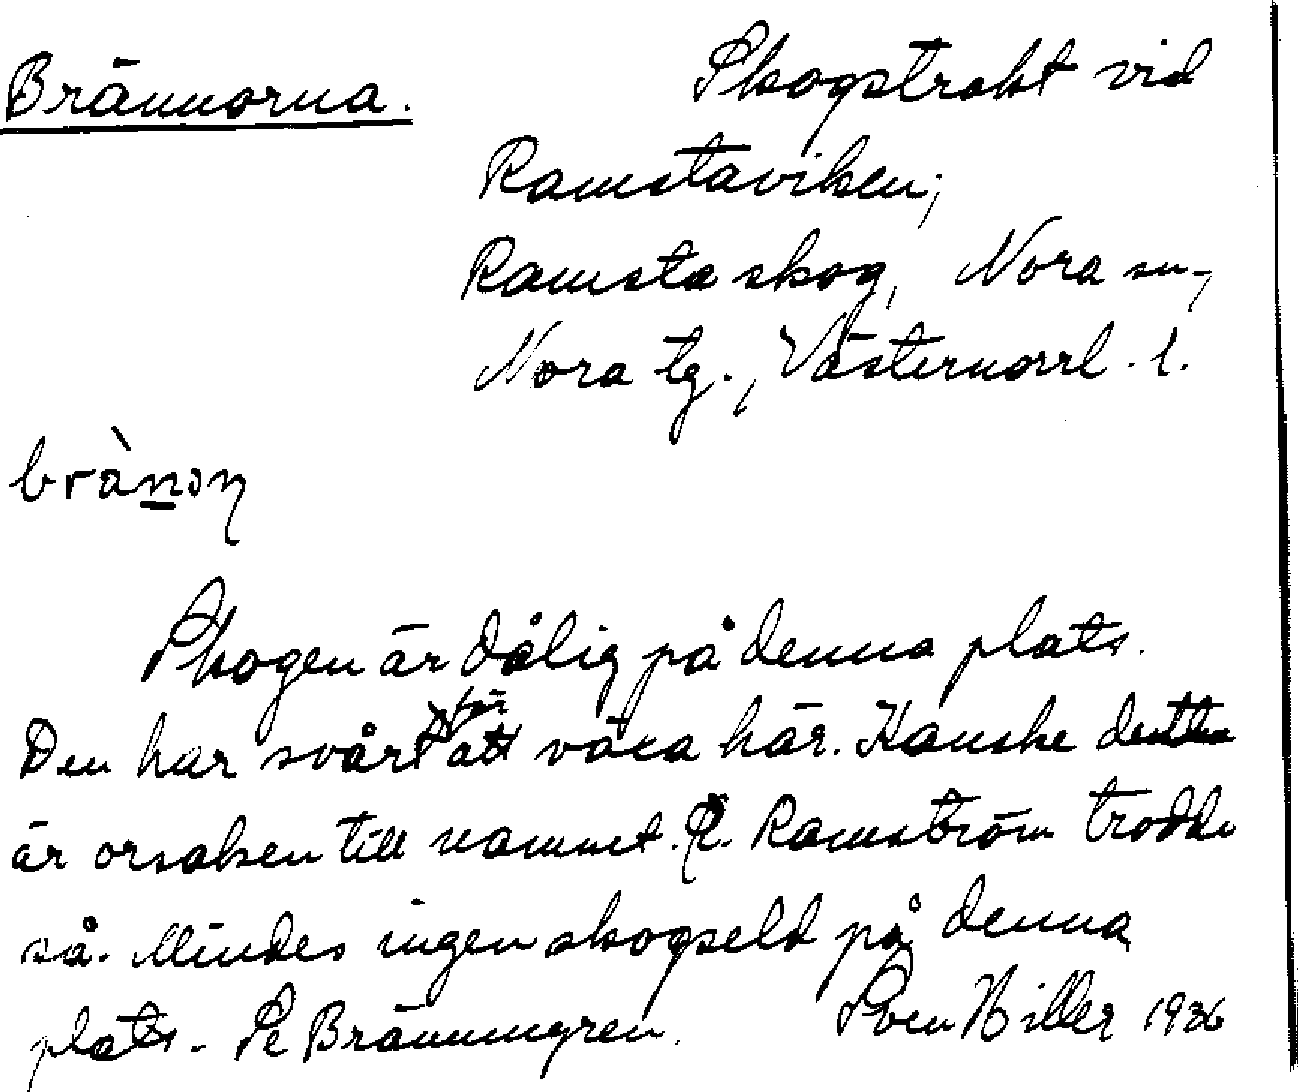 Brännorna. Skogstrakt vid
Ramstaviken;
Ramsta skog, Nora sn,
Nora tg., Västernorrl. l.
brànɔn
Skogen är dålig på denna plats.
Den har svårt för att växa här. Kanske detta
är orsaken till namnet. R. Ramström trodde
så. Mindes ingen skogseld på denna
plats. – Se Bränningren. Sven Hiller 1936